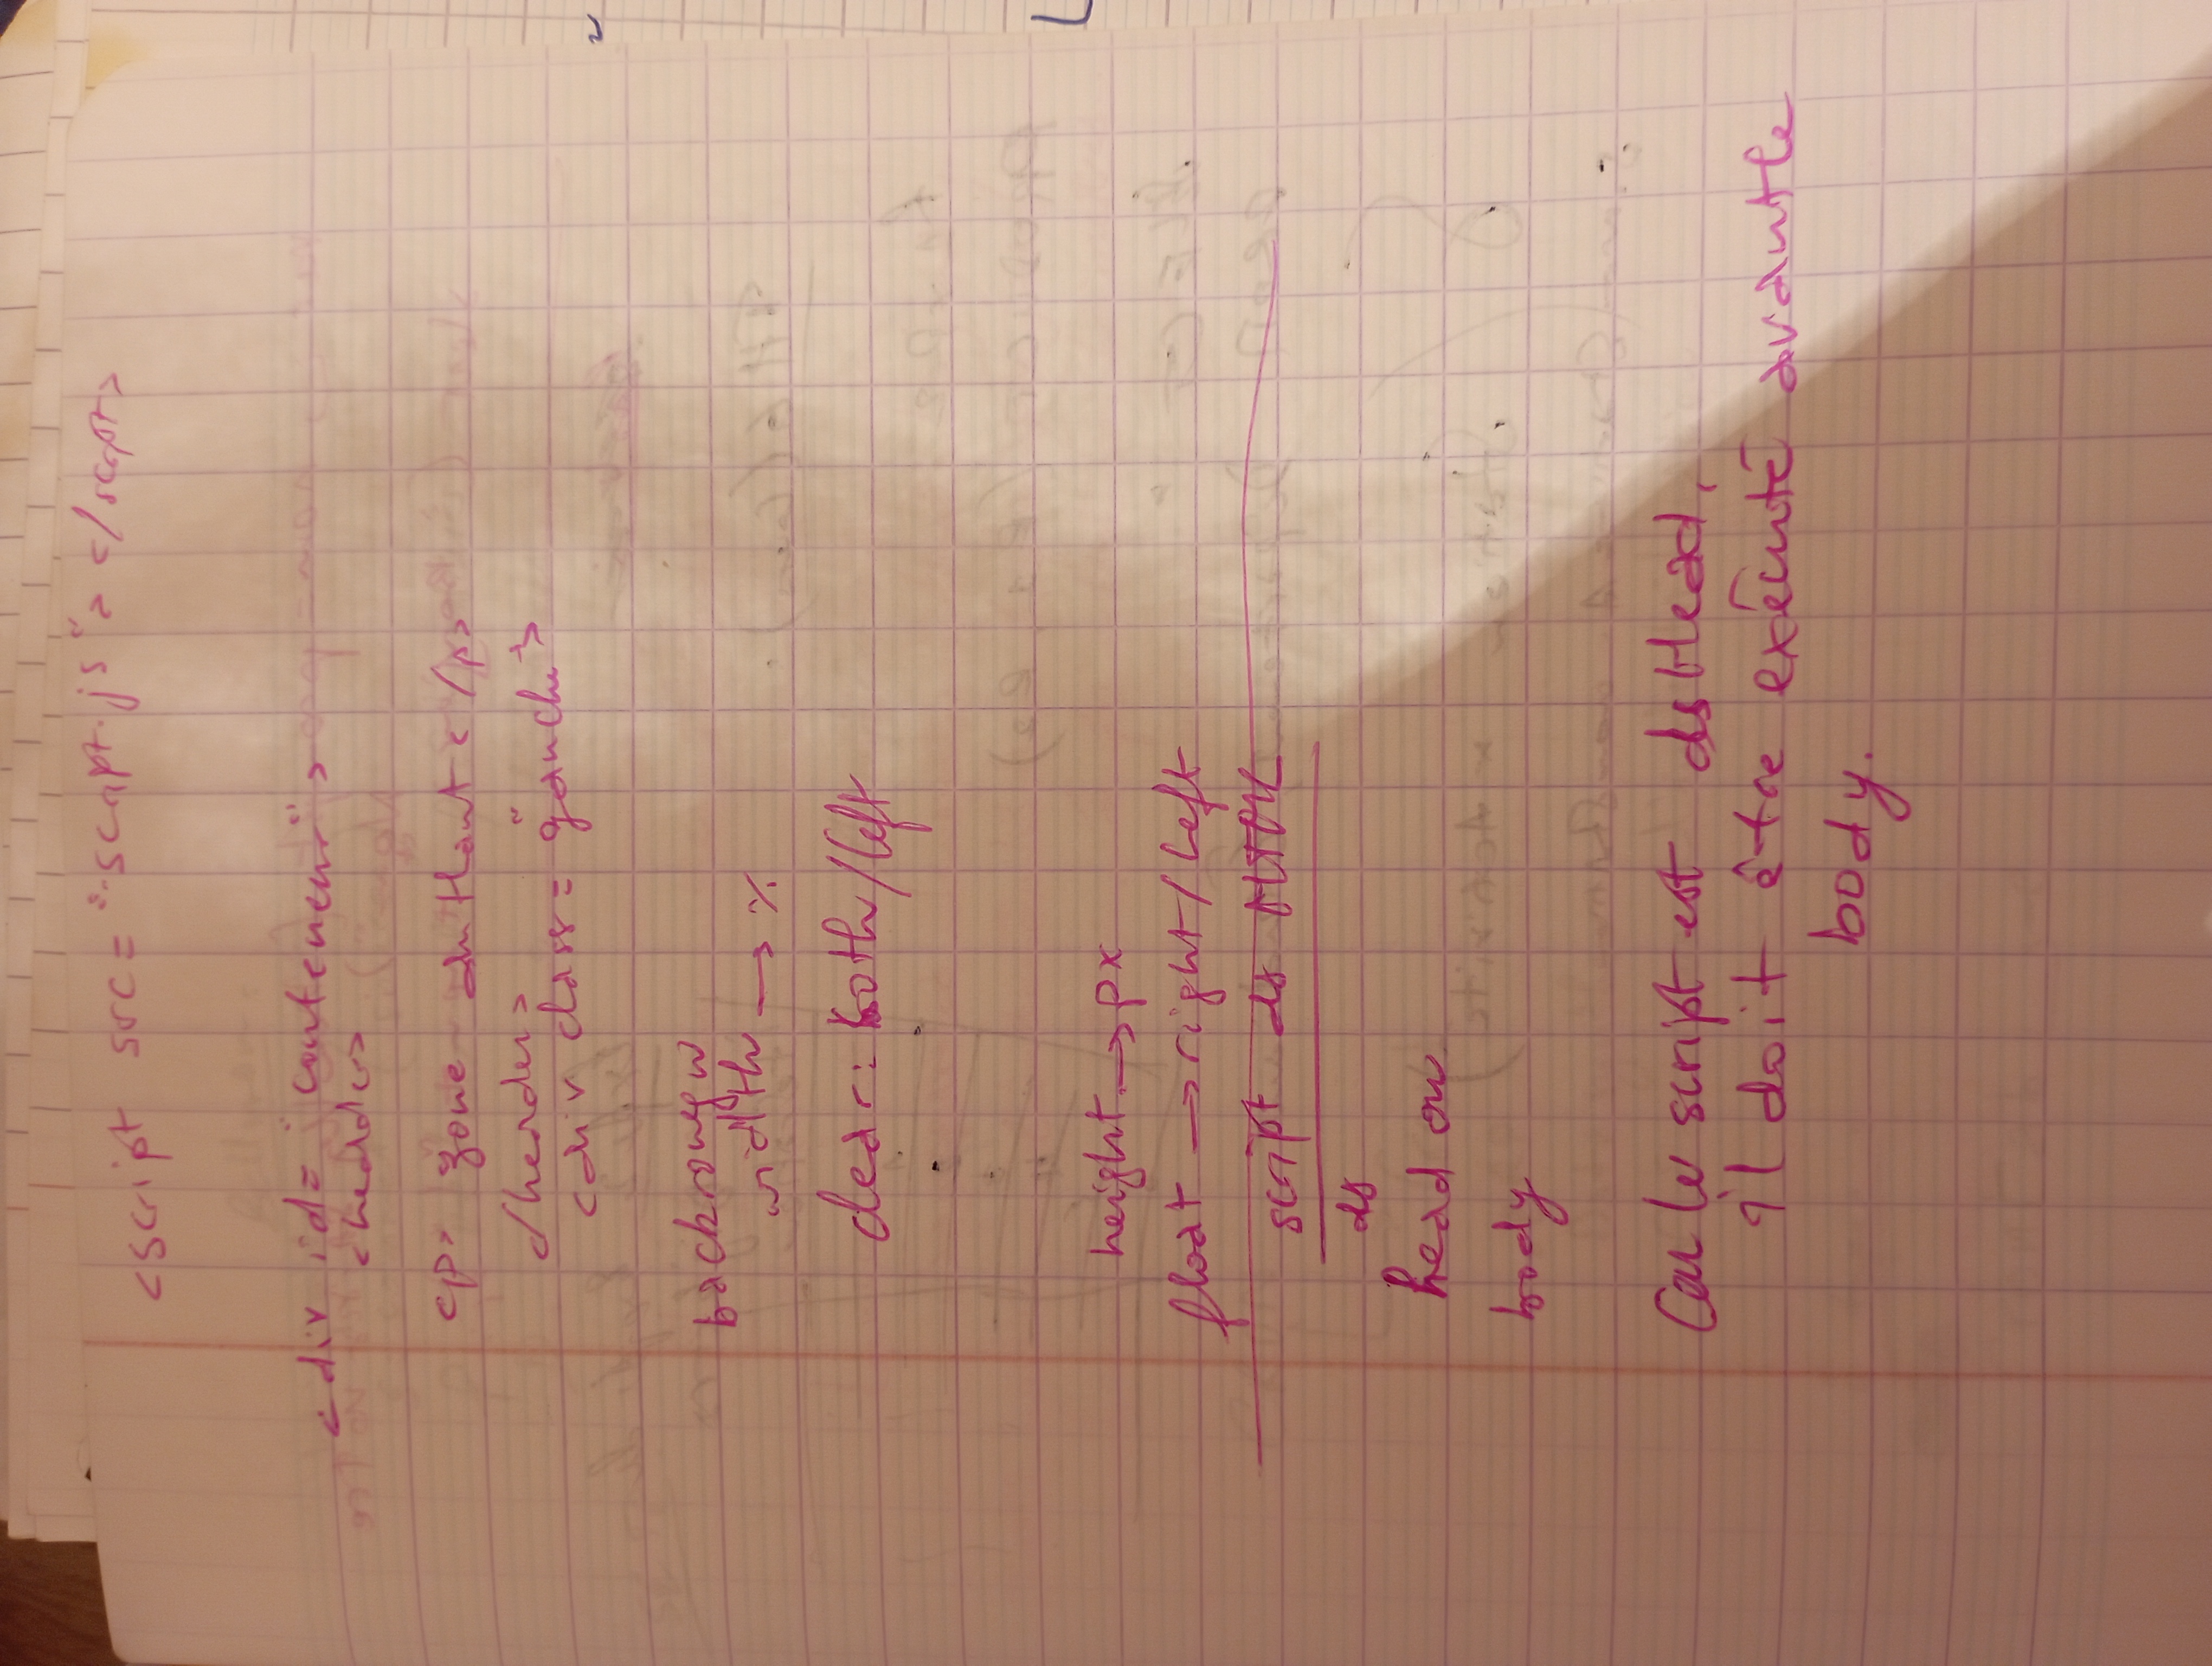 <script src="script.js"></script>
<div id="conteneur">
<header>
<p> zone du Haut </p>
</header>
<div class="gauche">
backroungw
width → %
clear: both/left
height → px
float → right/left
script ds HTML
ds
head ou
body
Car le script est ds Head,
il doit être exécuté avant le
body.